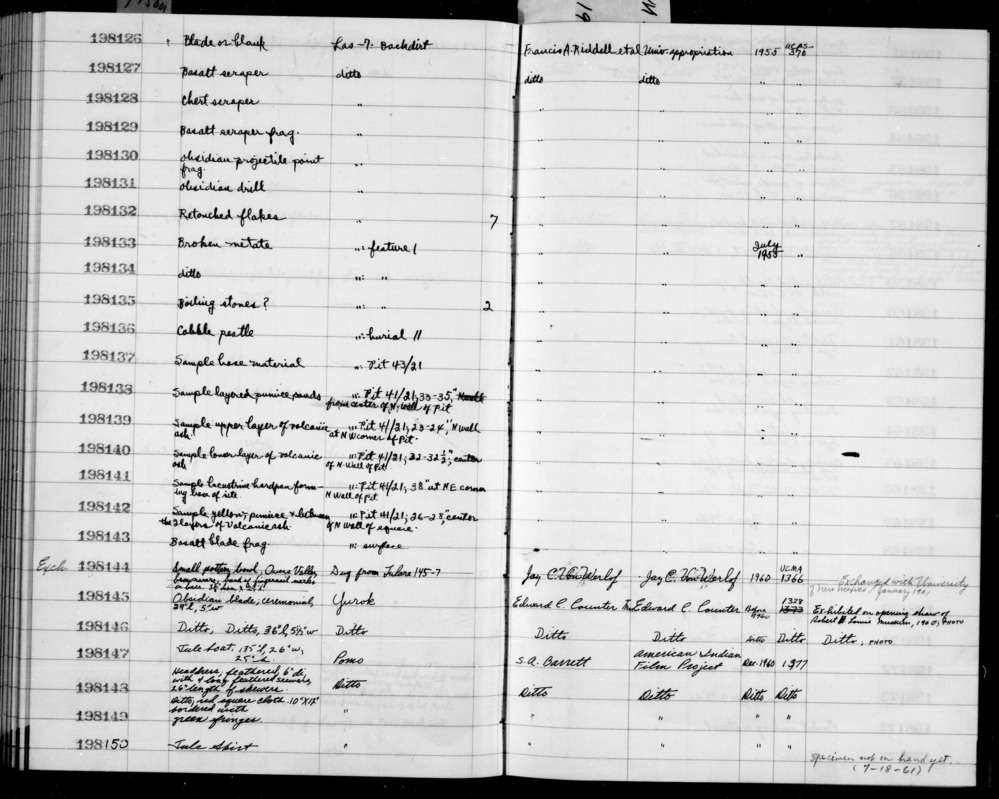 198126 Blade or blank Las-7: Backdirt Francis A. Riddell et al Univ. appropriation 1955 UCAS-370
198127 Basalt scraper ditto ditto ditto " "
198128 Chert scraper " " " " "
198129 Basalt scraper frag. " " " " "
198130 Obsidian projectile point frag. " " " " "
198131 Obsidian drill " " " " "
198132 Retouched flakes " 7 " " " "
198133 Broken metate ": feature 1 " " July 1955 "
198134 ditto ": " " " " "
198135 Boiling stones? ": " 2 " " " "
198136 Cobble pestle ": burial 11 " " " "
198137 Sample base material ": Pit 43/21 " " " "
198138 Sample layered pumice sands ": Pit 41/21, 33-35,"
from center of N. wall of Pit " " " "
198139 Sample upper layer of volcanic ": Pit 41/21, 23-24," N wall
ash. at NW corner of pit. " " " "
198140 Sample lower layer of volcanic ": Pit 41/21; 32-32½", center
ash of N. wall of Pit. " " " "
198141 Sample lacustrine hardpan form- ": Pit 41/21, 38" at NE corner
ing base of site. N wall of pit " " " "
198142 Sample yellow, pumice & between ": Pit 41/21; 26-28," center
the 2 layers of volcanic ash. of N wall of square. " " " "
198143 Basalt blade frag. ": surface " " " "
Exch. 198144 Small pottery bowl, Owens Valley Dug from Tulare 145-7 Jay C. Von Werlof Jay C. Von Werlof 1960 UCMA 1366 Exchanged with University
brownware, band of fingernail marks of New Mexico, January 1961
198145 Obsidian blade; ceremonial, Yurok Edward C. Counter Edward C. Counter Before 1960 1373 Exhibited on opening show of
29"l, 5"w Robert H. Lowie Museum, 1960; PHOTO
198146 Ditto, Ditto, 36"l, 5½"w Ditto Ditto Ditto Ditto Ditto Ditto, PHOTO
198147 Tule boat, 135"l, 26"w, Pomo S.A. Barrett American Indian Film Project Dec. 1960 1377
25"h.
198148 Headdress, feathered, 6" di, Ditto Ditto Ditto Ditto Ditto
with 4 long feathered skewers,
26" length of skewers.
198149 Ditto, red square cloth 10"X12" " " " " "
bordered with
green fringes.
198150 Tule skirt " " " " "
specimen not on hand yet.
(7-18-61)